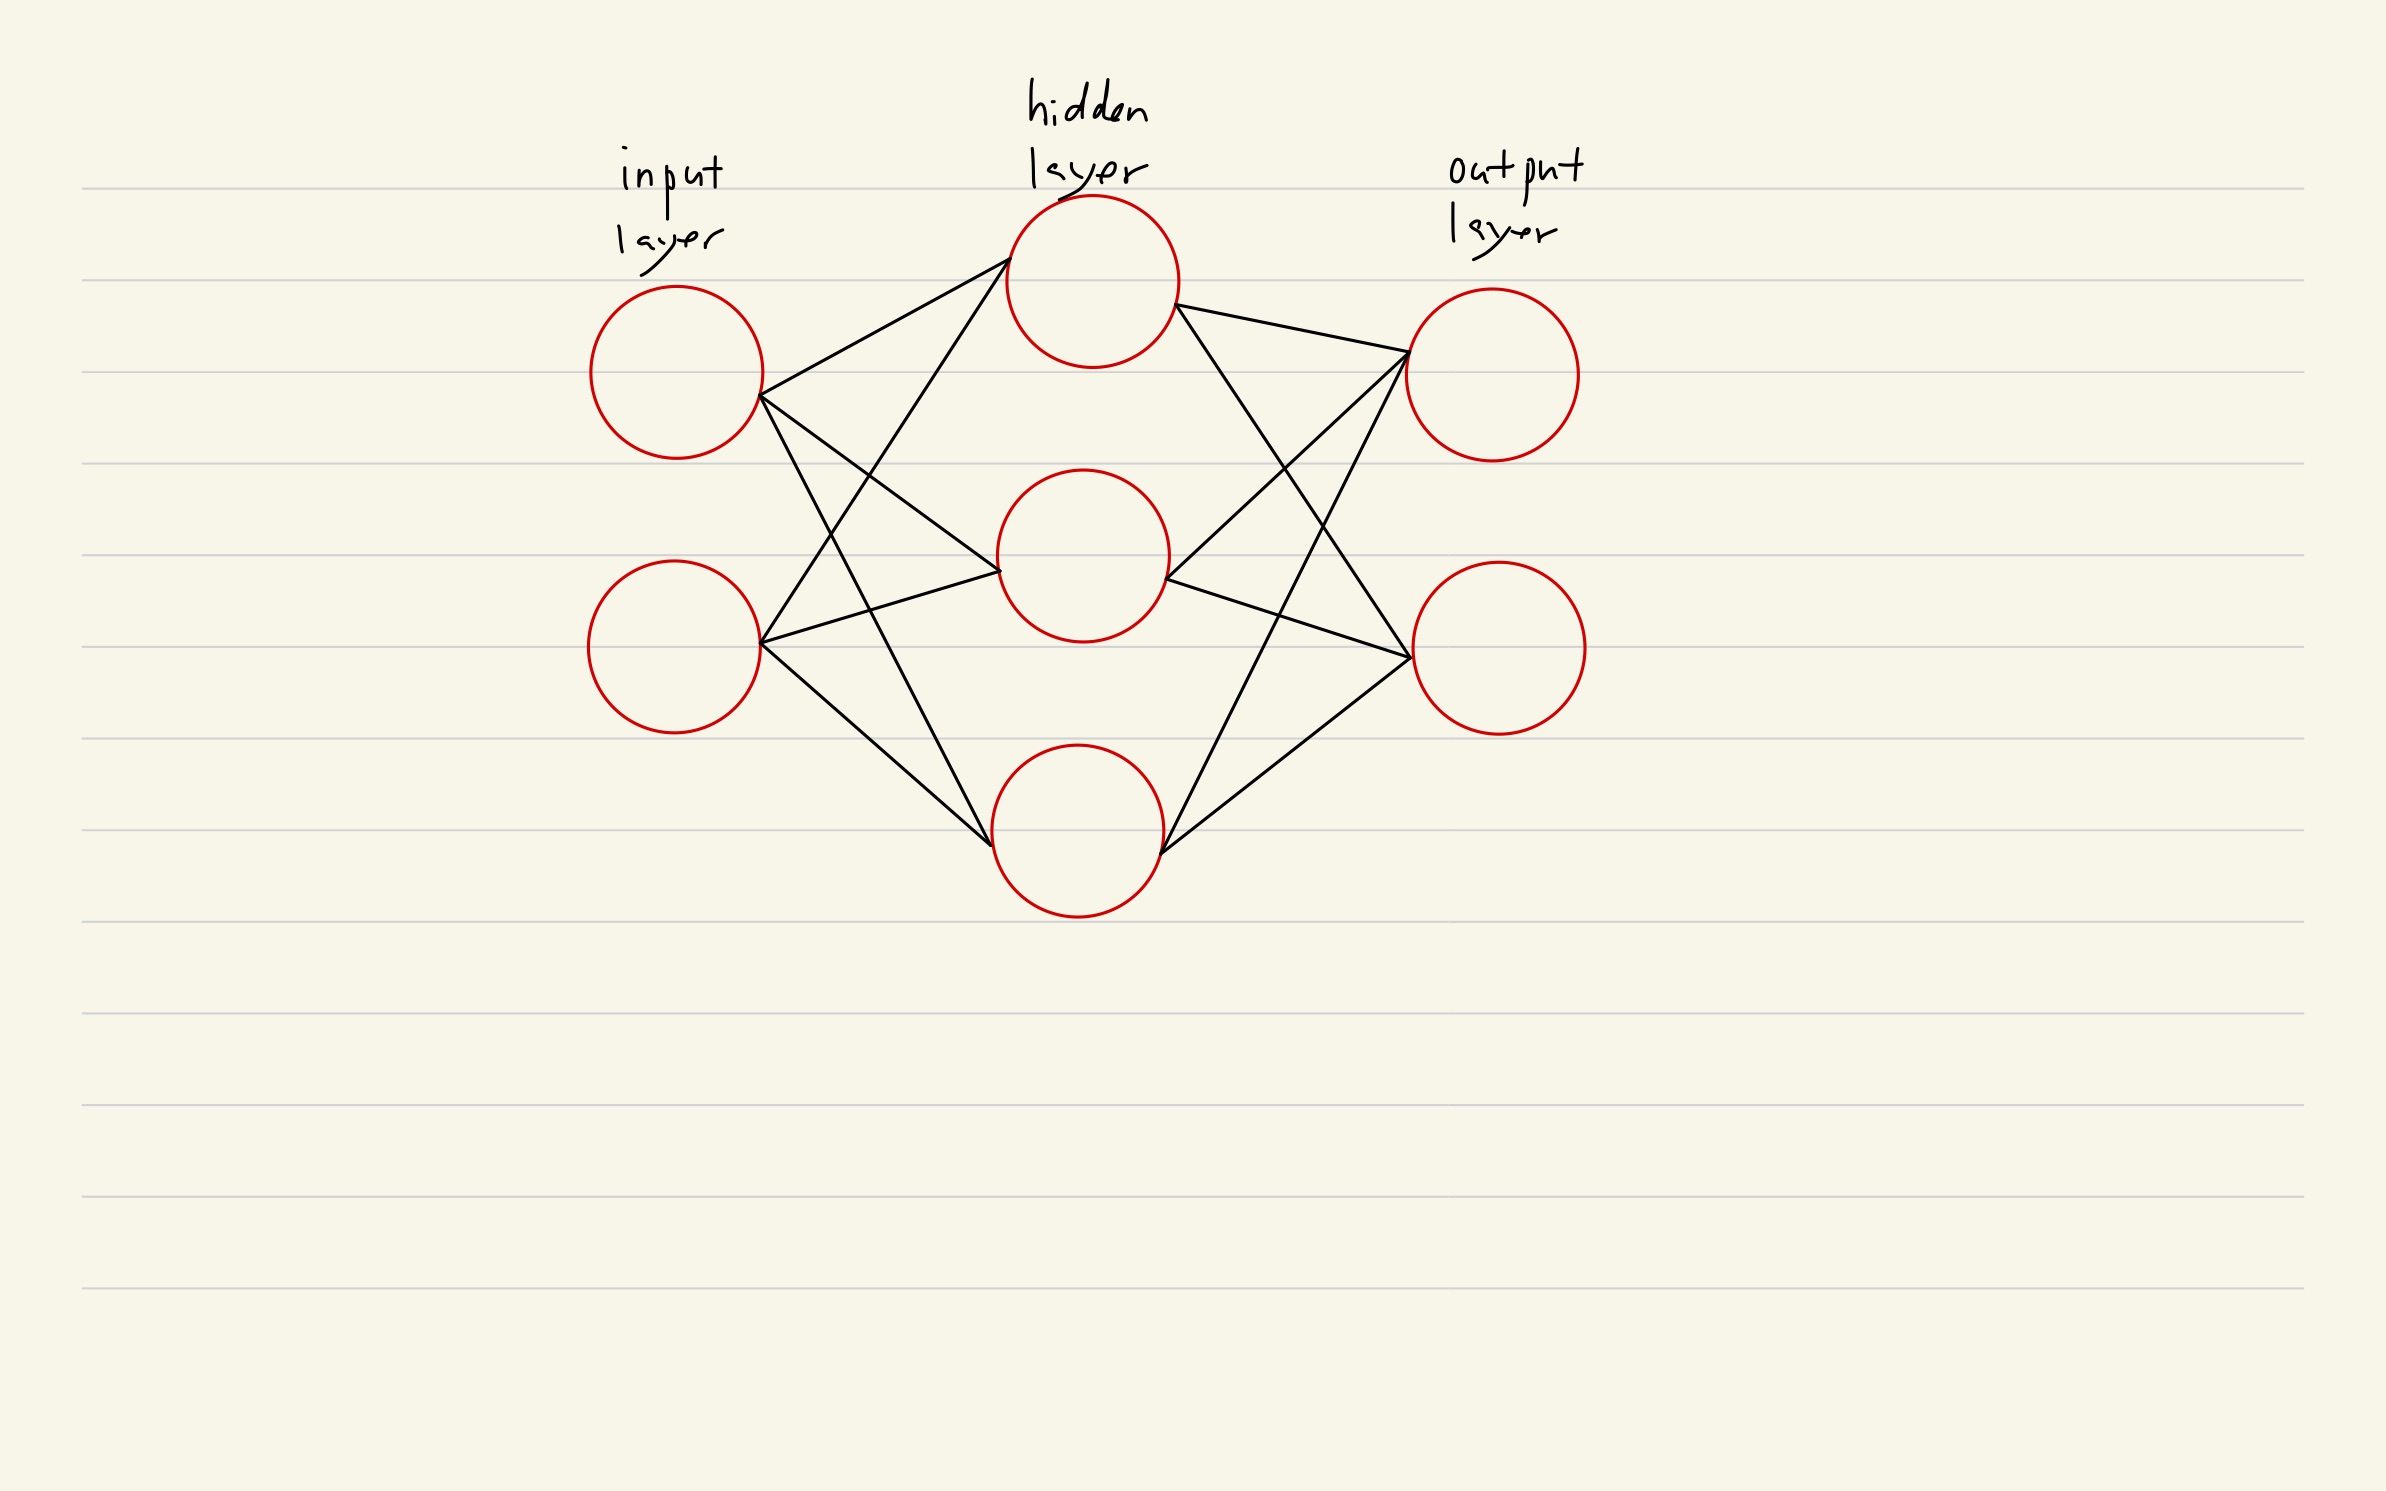 input
layer
hidden
layer
output
layer